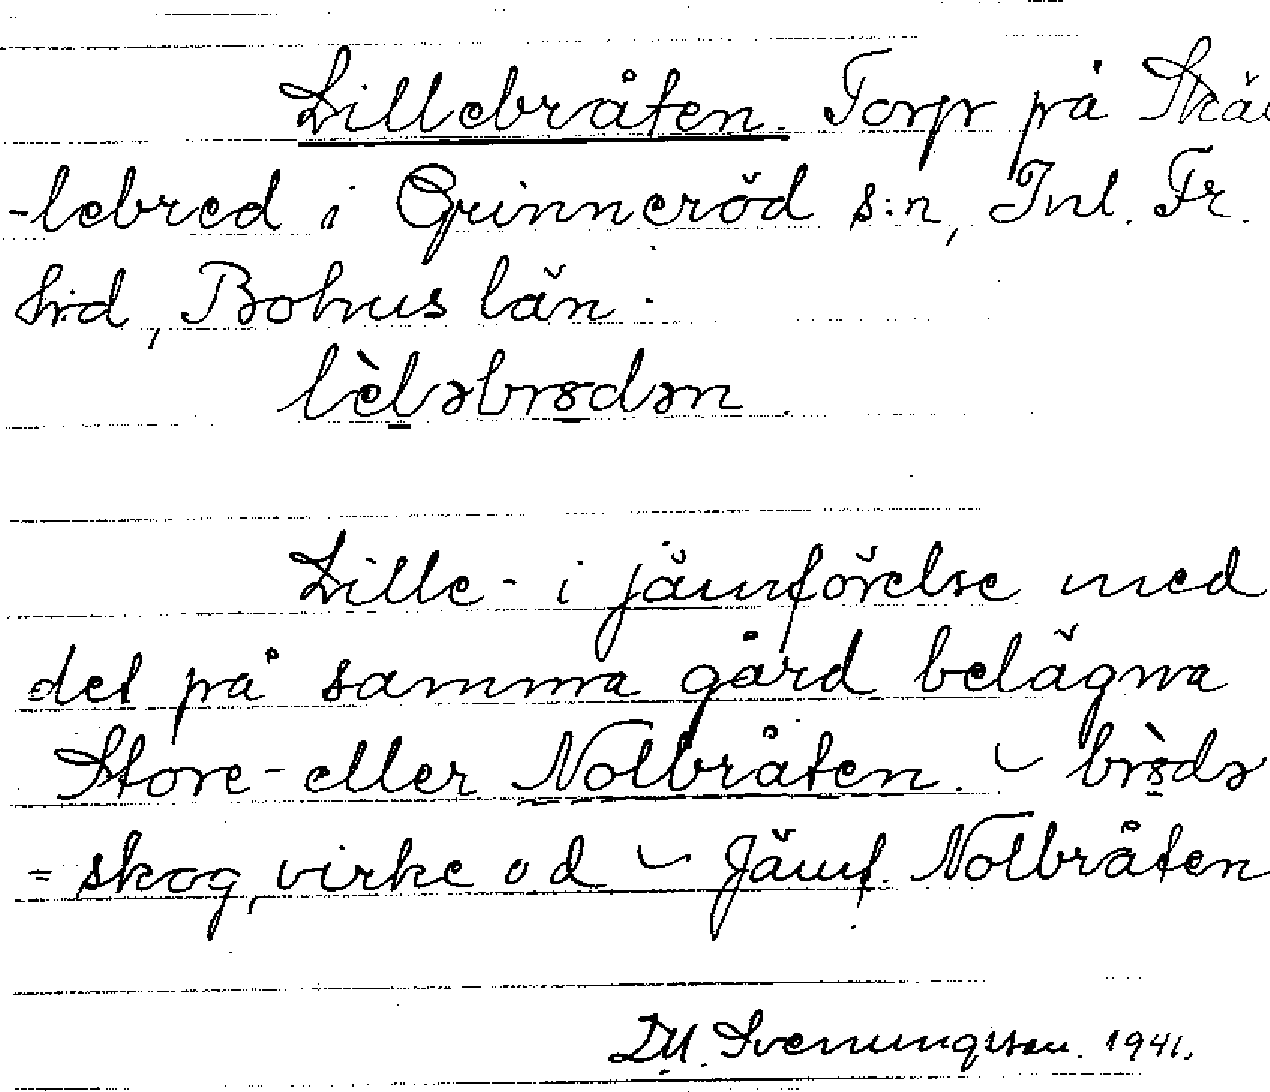 Lillebråten. Torp på Skäl
-lebred i Grinneröd s:n, Inl. Fr.
hd, Bohus län.
lèləbrɷdən
Lille- i jämförelse med
det på samma gård belägna
Store- eller Nolbråten. ~ brɷ̀də
= skog, virke o d ~ Jämf. Nolbråten
D.M. Svenungsson. 1941.